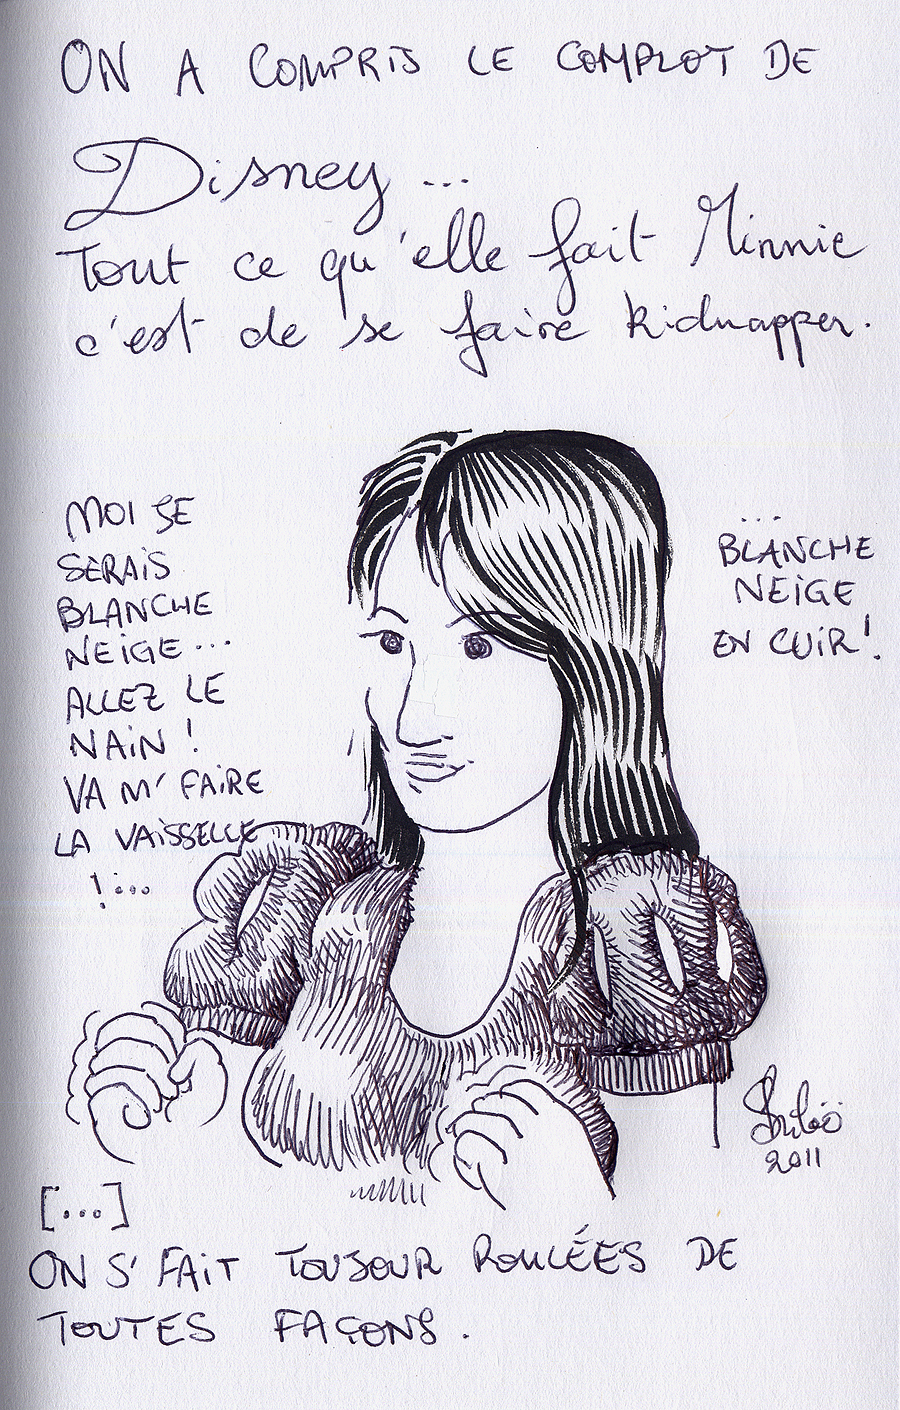 ON A COMPRIS LE COMPLOT DE
Disney...
Tout ce qu'elle fait Minnie
c'est de se faire kidnapper.
MOI JE
SERAIS
BLANCHE
NEIGE...
ALLEZ LE
NAIN !
VA M'FAIRE
LA VAISSELLE
!...
...
BLANCHE
NEIGE
EN CUIR !
2011
[...]
ON S'FAIT TOUJOUR ROULÉES DE
TOUTES FAÇONS.